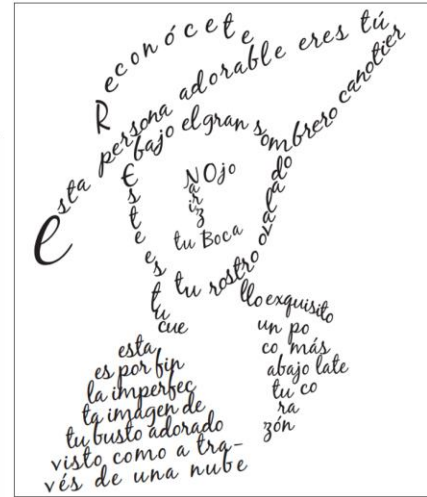 Reconócete
Esta persona adorable eres tú
bajo el gran sombrero canotier
Ojo
Nariz
tu Boca
Este es tu rostro ovalado
tu cue
llo exquisito
un po
co más
abajo late
tu co
ra
zón
esta
es por fin
la imperfec
ta imagen de
tu busto adorado
visto como a tra-
vés de una nube